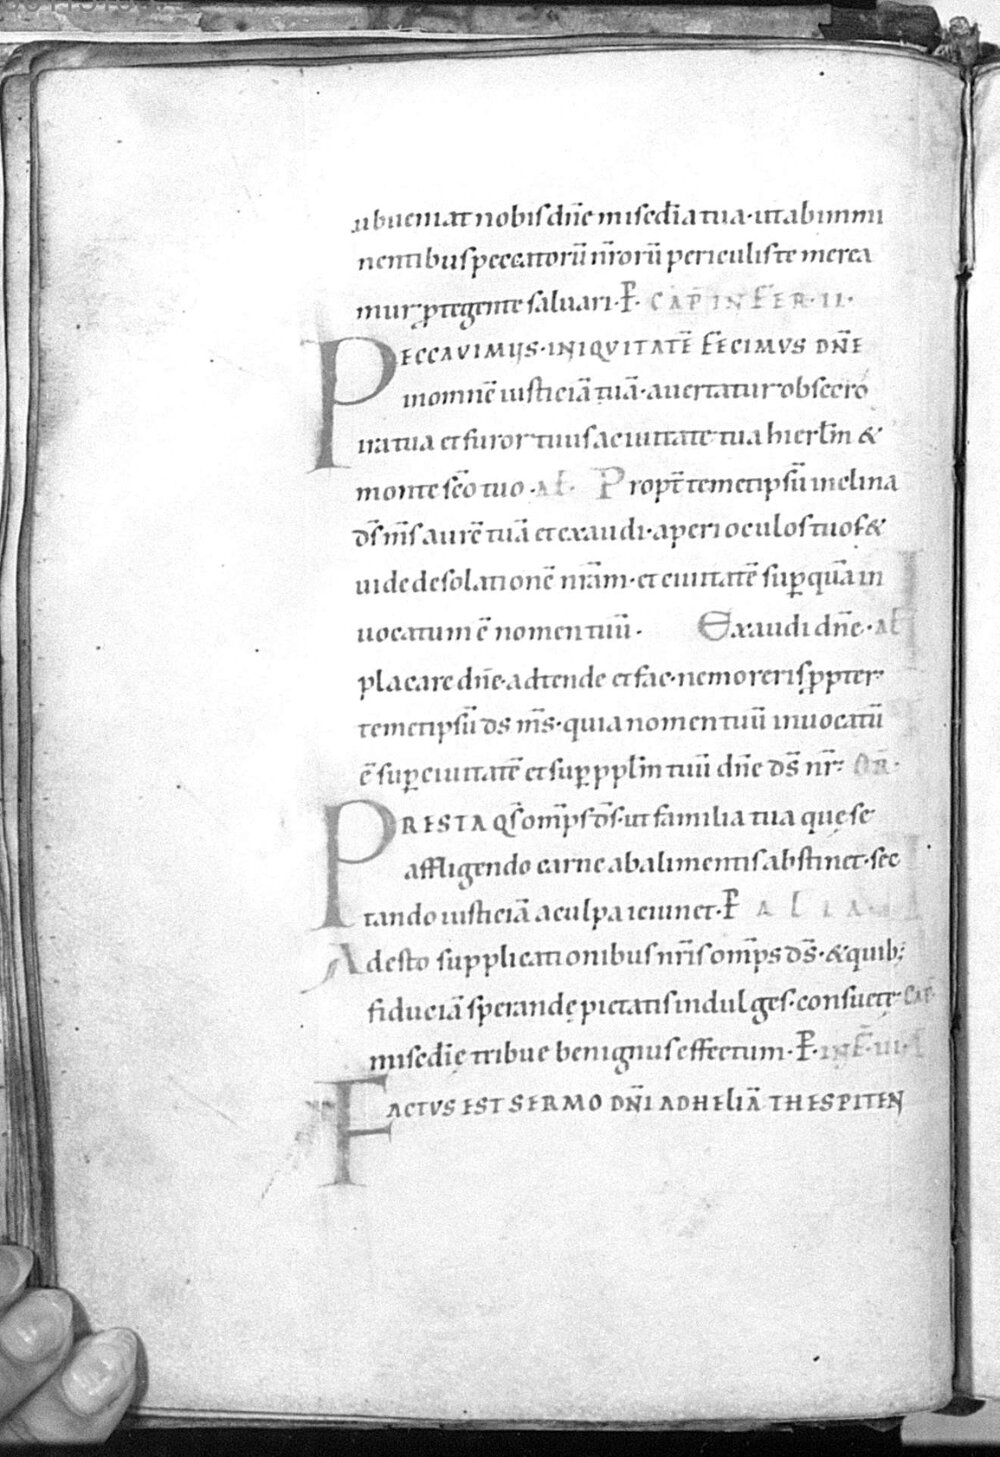 ubueniat nobis dn̄e misedīa tua · ut ab immi
nentibus peccatorū nr̄orū periculis te merea
mur p̱tegente saluari · P̵ · CAP̄ IN FER · II ·
PECCAVIMUS · INIQVITATĒ FECIMVS DN̄E
in omnē iusticiā tuā · auertatur obsecro
ira tua et furor tuus a ciuitate tua hierl̄m &
monte sc̄o tuo · AƗ · Propt̄ temetipsū inclina
ds̄ ms̄ aurē tuā et exaudi · aperi oculos tuos &
uide desolationē nr̄am · et ciuitatē sup̱ quā in
uocatum ē nomen tuū · Exaudi dn̄e · AƗ
placare dn̄e · adtende et fac · ne moreris p̱pter
temetipsū ds ms̄ · quia nomen tuū inuocatū
ē sup̱ ciuitatē et sup̱ ppl̄m tuū dn̄e ds̄ nr̄ · OR̄ ·
PRESTA Qs̄ omp̄s ds̄ · ut familia tua quę se
affligendo carne ab alimentis abstinet · sec
tando iusticiā a culpa ieiunet · P̵ ALIA
Adesto supplicationibus nr̄is omp̄s ds̄ · & quib;
fiduciā sperandę pietatis indulges · consuetę CAP̄
misedīę tribue benignus effectum · P̵ · IN F̄ · III ·
FACTVS EST SERMO DN̄I AD HELIĀ THESPITEN